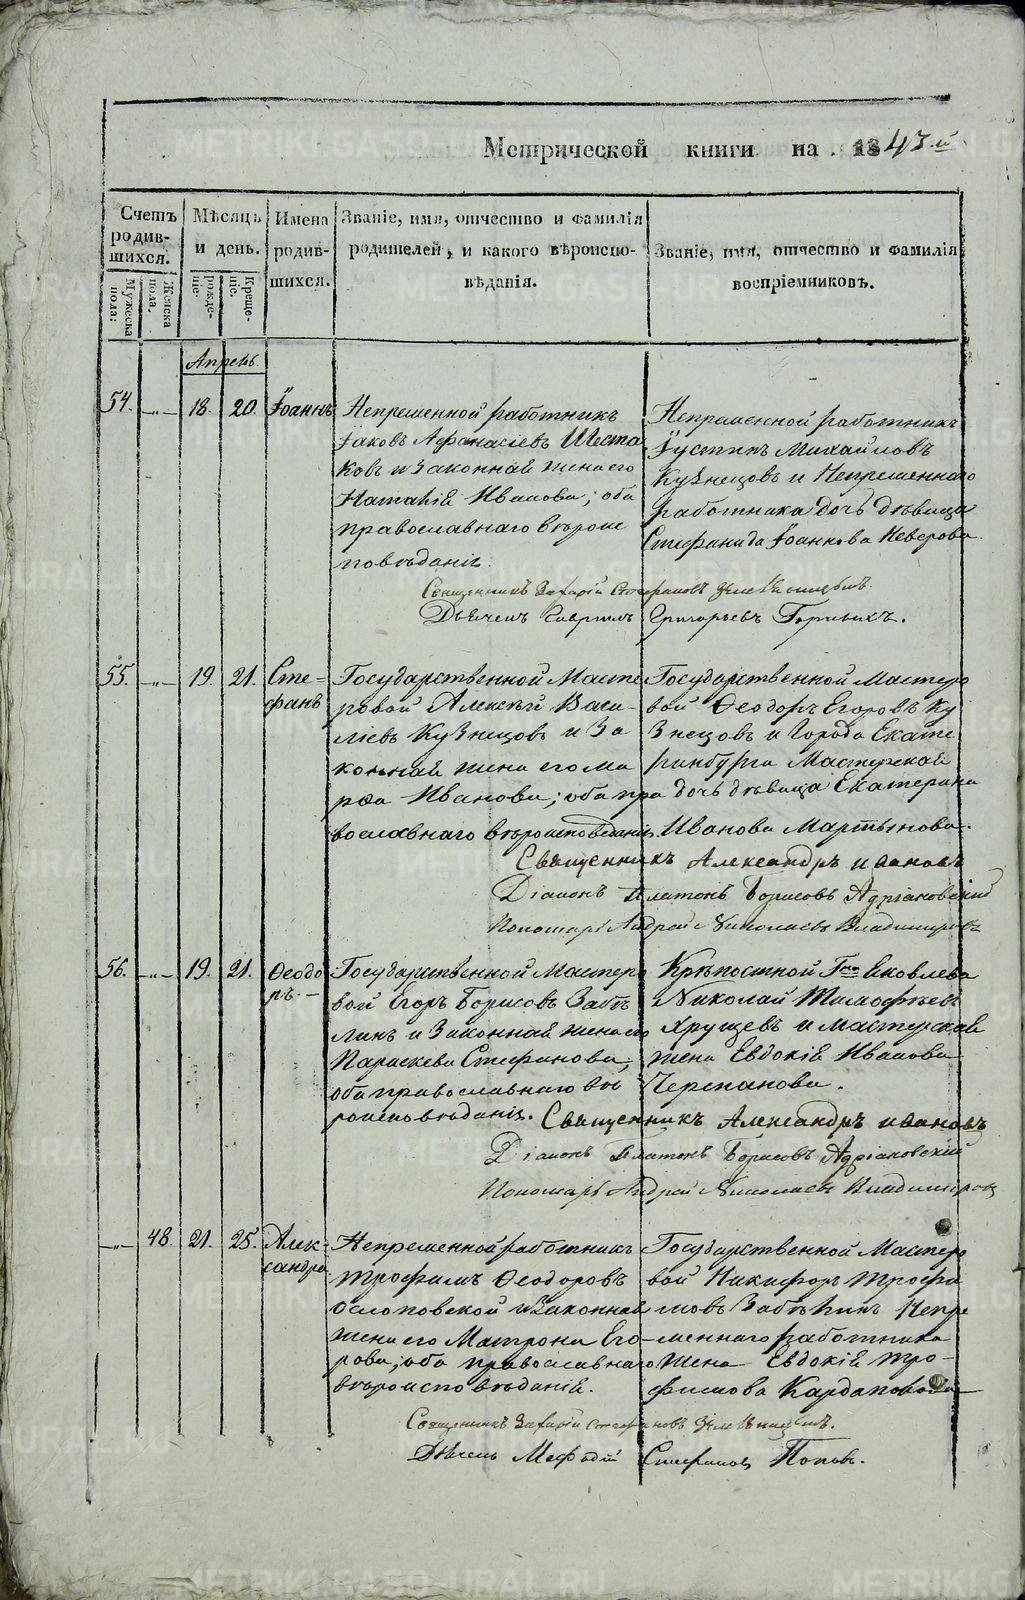 Метрической книги на 1843-й
Счетъ родившихся.
Мужеска пола:
Женска пола.
Мѣсяць и день.
рожденіе.
Крещеніе.
Имена родившихся.
Званіе, имя, отчество и фамилія родителей, и какого вѣроисповѣданія.
Званіе, имя, отчество и фамилія воспріемниковъ.
Апрель.
54. —„— 18. 20. Іоаннъ
Непременной работникъ
Іаковъ Афанасіевъ Шеста
ковъ и законная жена его
Наталія Иванова; оба
православнаго вѣроис
повѣданія.
Непременной работникъ
Іустинъ Михайловъ
Кузнецовъ и Непременнаго
работника дочь дѣвица
Стефанида Іоаннова Неверова.
Священникъ Захарій Стефановъ
Дьячекъ Гавриилъ Григорьевъ Горныхъ.
55. —„— 19. 21. Сте=
фанъ
Государственной Масте
ровой Алексѣй Васи-
льевъ Кузнецовъ и За
конная жена его Ма
рѳа Иванова; оба пра
вославнаго вѣроисповѣданія
Государственной Мастеро
вой Ѳеодоръ Егоровъ Ку
знецовъ и Города Екате
ринбурга Мастерская
дочь дѣвица Екатерина
Иванова Мартынова.
Священникъ Александръ Ивановъ
Діаконъ Платонъ Борисовъ Адріановскій
Пономарь Андрей Николаевъ Владимировъ
56. —„— 19. 21. Ѳеодо
ръ.—
Государственной Мастеро
вой Егоръ Борисовъ Забѣ
линъ и Законная жена его
Параскева Стефанова;
оба православнаго вѣ
роисповѣданія.
Крѣпостной Гна Яковлева
Николай Тимофѣевъ
Хрущевъ и Мастерская
жена Евдокія Иванова
Черепанова.
Священникъ Александръ Ивановъ
Діаконъ Платонъ Борисовъ Адріановскій
Пономарь Андрей Николаевъ Владимировъ
—„— 48. 21. 25. Алек-
сандра
Непременной работникъ
Трофимъ Ѳеодоровъ
Ослоповской и Законная
жена его Матрона Его-
рова; оба православнаго
вѣроисповѣданія.
Государственной Мастеро
вой Никифоръ Трофи
мовъ Забѣлинъ Непре
меннаго работника
жена Евдокія Тро-
фимова
Священникъ Захарій Стефановъ
Дьячекъ Мефодій Стефановъ Поповъ.
METRIKI.GASO-URAL.RU